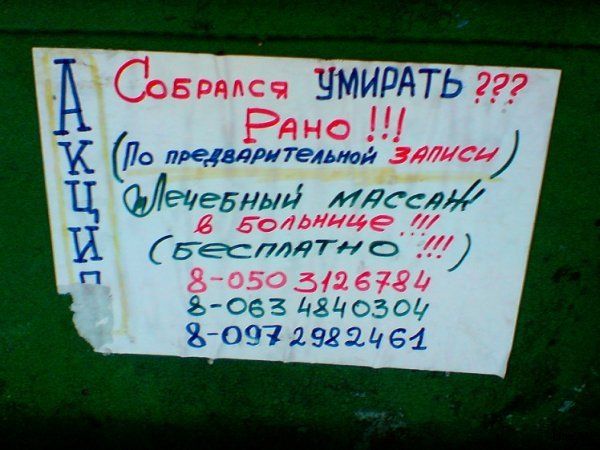 АКЦИЯ
СОБРАЛСЯ УМИРАТЬ ???
РАНО !!!
(ПО ПРЕДВАРИТЕЛЬНОЙ ЗАПИСИ)
ЛЕЧЕБНЫЙ МАССАЖ
В БОЛЬНИЦЕ !!!
(БЕСПЛАТНО !!!)
8-050 3126784
8-063 4840304
8-097 2982461